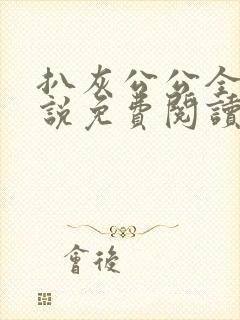 扒灰公公全
說免費閱讀
會後